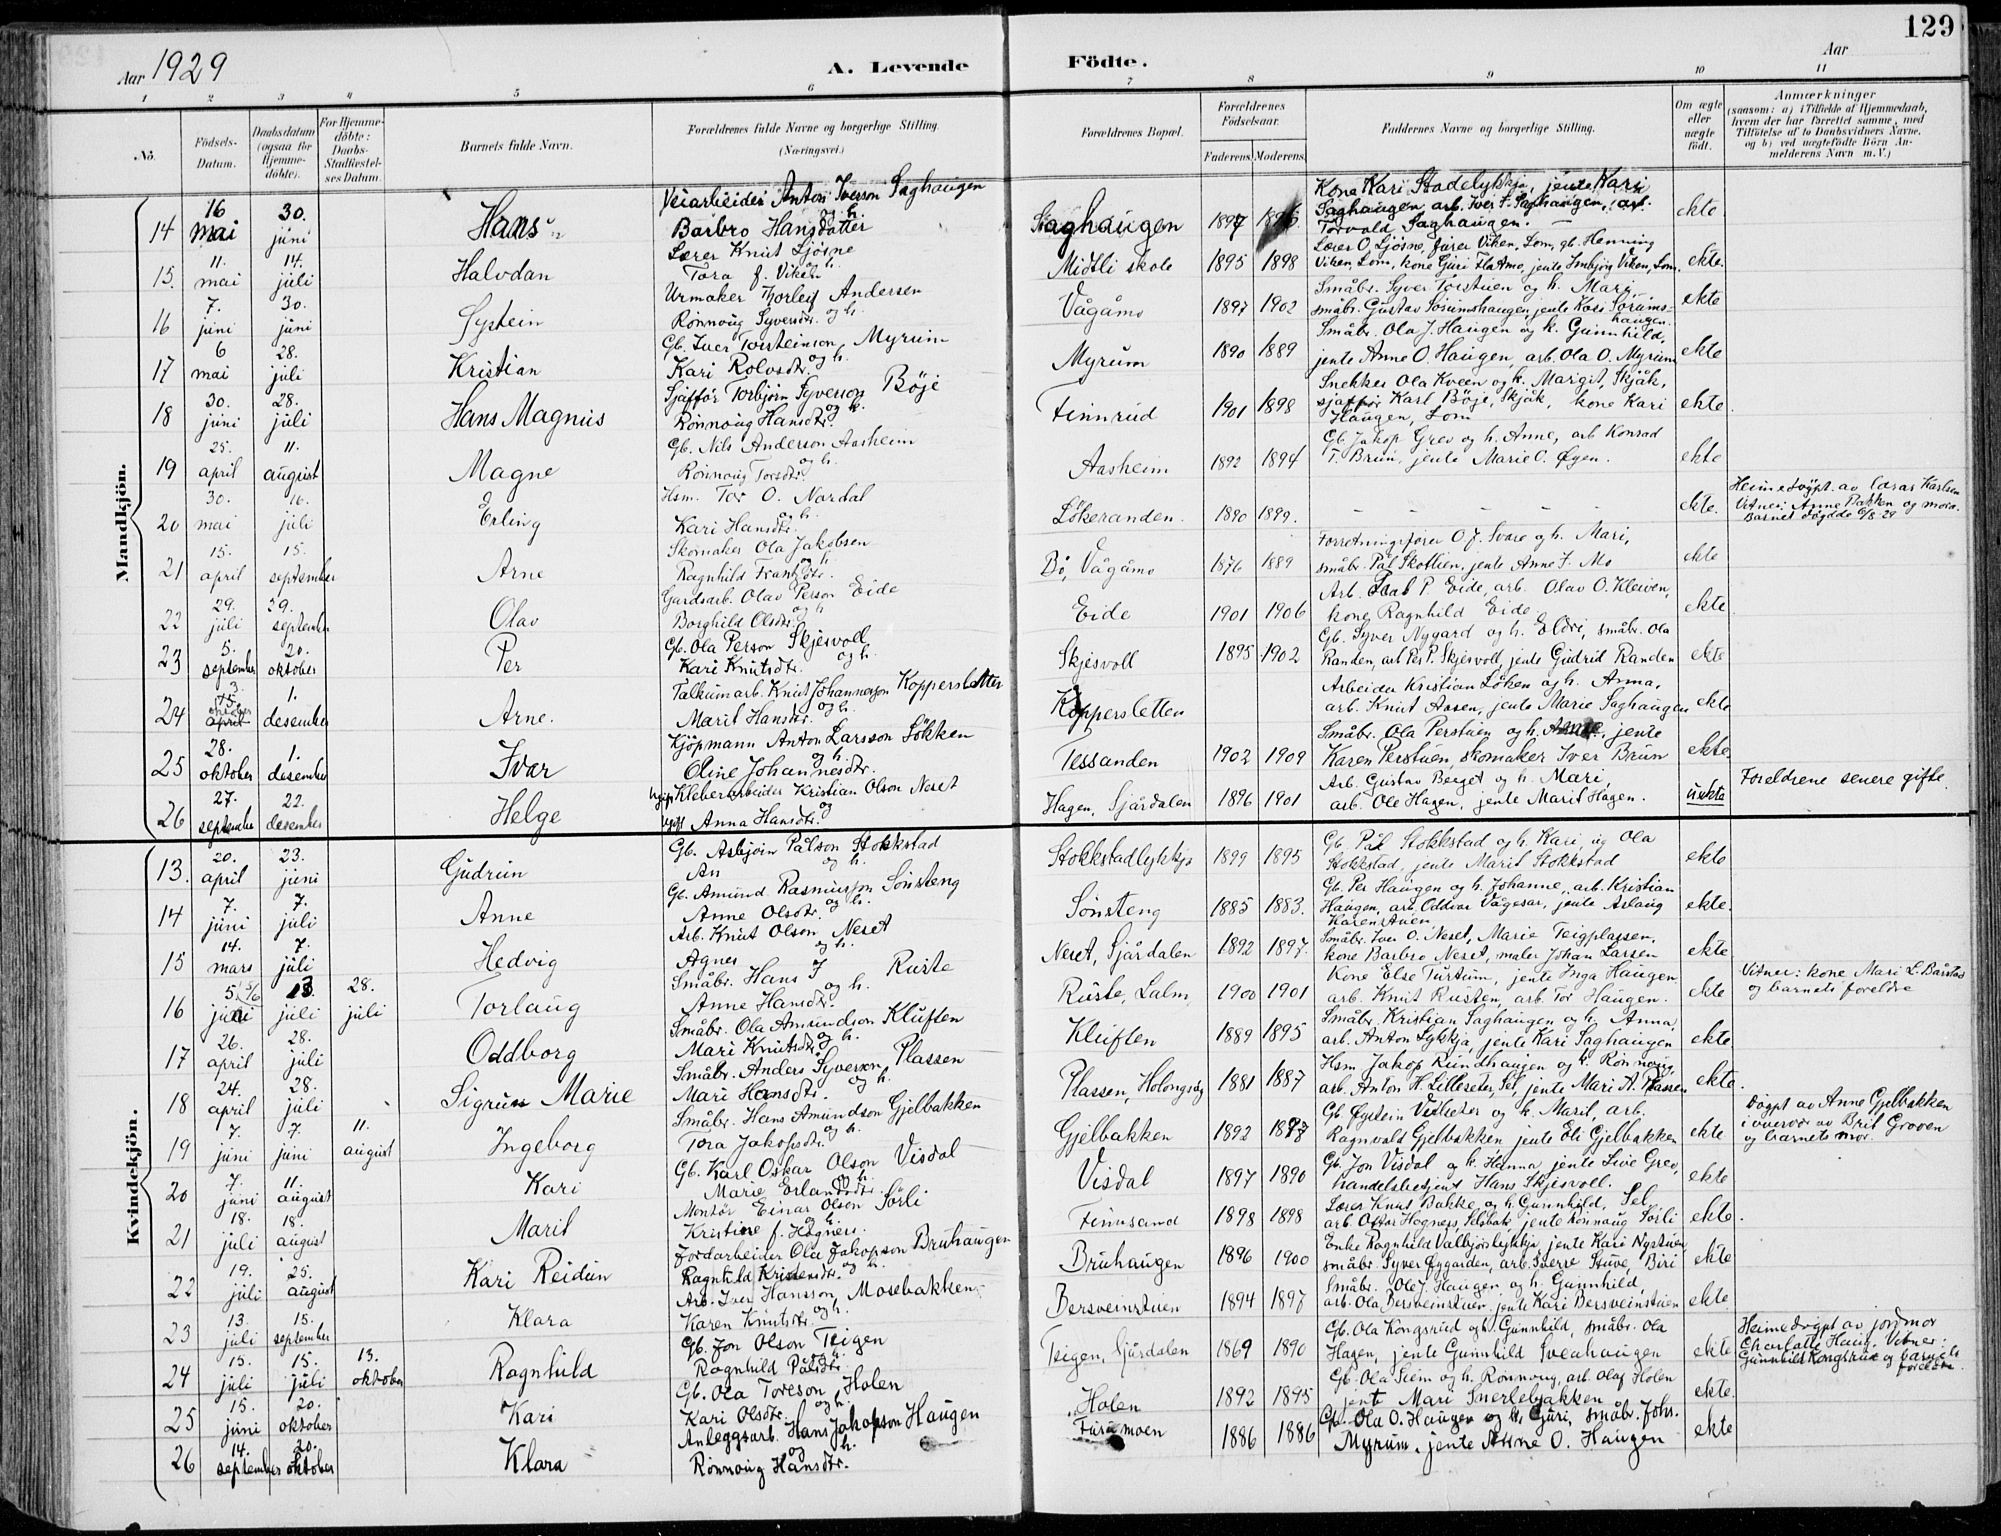 129
Aar 1929
A. Levende Födte.
Aar
1 2 3 4 5 6 7 8 9 10 11
No.
Födsels-Datum.
Daabsdatum (ogsaa for Hjemme-döbte).
For Hjemme-döbte: Daabs-Stadfæstel-ses Datum.
Barnets fulde Navn.
Forældrenes fulde Navne og borgerlige Stilling. (Næringsvei.)
Forældrenes Bopæl.
Forældrenes Födselsaar.
Faderens. Moderens.
Faddernes Navne og borgerlige Stilling.
Om ægte eller uægte födt.
Anmærkninger
(saasom: a) i Tilfælde af Hjemmedaab, hvem der har forrettet samme, med Tilföielse af to Daabsvidners Navne, og b) ved uægtefödte Börn An-melderens Navn m.V.)
Mandkjön.
14 16 mai 30. juni Hans Veiarbeider Anton Iverson Saghaugen og h. Barbro Hansdatter Saghaugen 1897 Kone Kari Stadelykkja, jente Kari Saghaugen, arb. Iver F. Saghaugen, arb. Torvald Saghaugen. ekte
15. 11. mai 14. juli Halvdan Lærer Knut Sjösne og h. Tora f. Viken Midtli skole 1895 1898 Lærer O. Sjösne, furer Viken, Lom, gb. Henning Viken, Lom, kone Guri Flatmo, jente Imbjörg Viken, Lom. ekte.
16 7. juni 30. juni Eystein Urmaker Thorleif Andersen og h. Rönnoug Syversdtr. Vågåmo 1897 1902 Småbr. Syver Torstuen og h. Mari, småbr. Gustav Sörumshaugen, jente Kari Sörums-haugen. ekte
17 6 mai 28. juli Kristian Gb. Iver Torsteinson Myrum og h. Kari Rolvsdtr. Myrum 1890 1889 Småbr. Ola J. Haugen og h. Gunnhild, jente Anne O. Haugen, arb. Ola O. Myrum ekte
18 30. juni 28. juli Hans Magnus Sjafför Torbjörn Syverson Böje og h. Rönnoug Hansdtr. Finnrud 1901 1898 Snekker Ola Kveen og h. Margit, Skjåk, sjafför Karl Böje, Skjåk, kone Kari Haugen, Lom ekte.
19 25. april 11. august Magne Gb. Nils Anderson Aasheim og h. Rönnoug Torsdtr. Aasheim 1892 1894 Gb. Jakop Grev og h. Anne, arb. Konrad T. Brun, jente Marie O. Öyen. ekte
20 30. mai 16. juli Erling Hsm. Tor O. Nordal og h. Kari Hansdtr. Lökeranden. 1890 1899. ekte. Heimedöypt av Vitner: Anne Bakken og mora. Barnet dögdde 6/8 29
21 15. april 15. september Arne Skomaker Ola Jakobsen og h. Ragnhild Frantsdtr. Bö, Vågåmo 1876 1889 Forretningsförer O. J. Svare og h. Mari, småbr. Pål Skottien, jente Anne F. Mo ekte
22 29. juli 29. september Olav Gardsarb. Olav Person Eide og h. Borghild Olsdtr. Eide 1901 1906 Arb. Paal P. Eide, arb. Olav O. Kleiven, kone Ragnhild Eide ekte.
23 5. september 20. oktober Per Gb. Ola Person Skjesvoll og h. Kari Knutsdtr. Skjesvoll 1895 1902 Gb. Syver Nygard og h. Eldri, småbr. Ola Randen, arb Per P. Skjesvoll, jente Gudrid Randen ekte
24 3. oktober 1. desember Arne. Talkumarb. Knut Johannesson Koppersletten og h. Marit Hansdtr. Koppersletten Arbeider Kristian Löken og h. Anna, arb. Knut Aasen, jente Marie Saghaugen ekte
25 28. oktober 1. desember Ivar Kjöpmann Anton Larsson Sökken og h. Oline Johannesdtr. Tessanden 1902 1909 Småbr. Ola Perstuen og h. Anne, jente Karen Perstuen, skomaker Iver Brun ekte.
26 27. september 22. desember Helge Ugift Kleberarbeider Kristian Olson Neset og Ugift Anna Hansdtr. Hagen, Sjårdalen 1896 1901 Arb. Gustav Berget og h. Mari, arb. Ole Hagen, jente Marit Hagen. uekte Foreldrene senere gifte.
Kvindekjön.
13. 20. april 23. juni Gudrun Gb. Asbjoin Pålson Stokkstad og h. An Stokkstadlykkja 1899 1895 Gb. Pål Stokkstad og h. Kari, ug Ola Stokkstad, jente Marit Stokkstad ekte
14 7. juni 7. juli Anne Gb. Amund Rasmusson Sönsteng og h. Anne Olsdtr. Sönsteng 1885 1883. Gb. Per Haugen og h. Johanne, arb. Kristian Haugen, arb. Oddvar Vågesar, jente Aslaug Karenstuen ekte.
15 14. mars 7. juli Hedvig Arb. Knut Olson Neset og h. Agnes Neset, Sjårdalen 1892 1897. Småbr. Iver O. Neset, Marie Teigplassen, kone Barbro Neset, maler Johan Larsen ekte
16 5. juni 13. juli 28. juli Torlaug Småbr. Hans J Ruste og h. Anne Hansdtr. Ruste, Lalm, 1900 1901 Kone Else Turtum, jente Inga Haugen arb. Knut Rusten, arb. Tor Haugen. ekte Vitner: kone Mari L. Bårstad og barnets foreldre
17 26. april 28. juli Oddborg Småbr. Ola Amundson Kluften og h. Mari Knutsdtr. Kluften 1889 1895 Småbr. Kristian Saghaugen og h. Anna, arb. Anton Lykkja, jente Kari Saghaugen ekte
18 24. april 28. juli Sigrun Marie Småbr. Anders Syverson Plassen og h. Mari Hansdtr. Plassen, 1881 1887 Hsm Jakop Rundhaugen og h. Rönnoug, arb. Anton H. Lilleseter, Sel, jente Mari A. Plassen ekte.
19 7. juni 7. juni 11. august Ingeborg Småbr. Hans Amundson Gjelbakken og h. Tora Jakobsdtr. Gjelbakken 1892 Gb Öystein Vedseter og h. Marit, arb. Ragnvald Gjelbakken jente Eli Gjelbakken ekte Döypt av Anne Gjelbakken i övervær av Brit Groven og barnets mor.
20 7. juni 11. august Kari Gb. Karl Oskar Olson Visdal og h. Marie Erlandsdtr. Visdal 1897 1890 Gb. Jon Visdal og h. Hanna, jente Live Grev, handelsbetjent Hans Skjesvoll. ekte
21 18. juli 18. august Marit Montör Einar Olson Sörli og h. Kristine f. Hogness Finnsand 1898 1898 Lærer Knut Bakke og h. Gunnhild, Sel, arb Ottar Hogness, Selsbak, jente Rönnaug Sörli ekte.
22 19. juli 25. august Kari Reidun Jordarbeider Ola Jakopson Bruhaugen og h. Ragnhild Kristensdtr. Bruhaugen 1896 1900 Enke Ragnhild Valbjörlykkja, jente Kari Nystuen, småbr. Syver Öygarden, arb. Sverre Stuve, Biri ekte
23 13. juli 15. september Klara Arb. Iver Hansson Mosebakken og h. Karen Knutsdtr. Bersveinstuen 1894 1897 Småbr. Ole J. Haugen og h. Gunnhild, arb. Ola Bersveinstuen, jente Kari Bersveinstuen ekte
24 15. juli 15. juli 13. oktober Ragnhild Gb. Jon Olson Teigen og h. Ragnhild Pålsdtr. Teigen, Sjårdalen 1869 1890 Gb. Ola Kongsrud og h. Gunnhild, småbr. Ola Hagen, jente Gunnhild Sveahaugen ekte Heimedöypt av jordmor Charlotte Haug. Vitner: Gunnhild Kongsrud og barnets foreldre.
25 15. juni 20. oktober Kari Gb. Ola Toreson Holen og h. Kari Olsdtr. Holen 1892 1895 Gb. Ola Siem og h. Rönnoug, arb. Olaf Holen jente Mari Snerlebakken ekte.
26 14. september 20. oktober Klara Anleggsarb. Hans Jakopson Haugen og h. Rönnoug Hansdtr. Furumoen 1886 1886 Gb. Ola O. Haugen og h. Guri, småbr. Johs. Myrum, jente Anne O. Haugen ekte